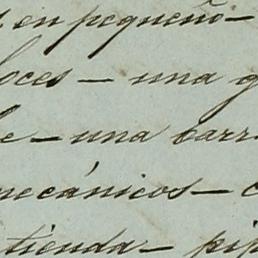 en pequeño —
oces — una g
e — una barr
mecánicos — c
tienda — pip